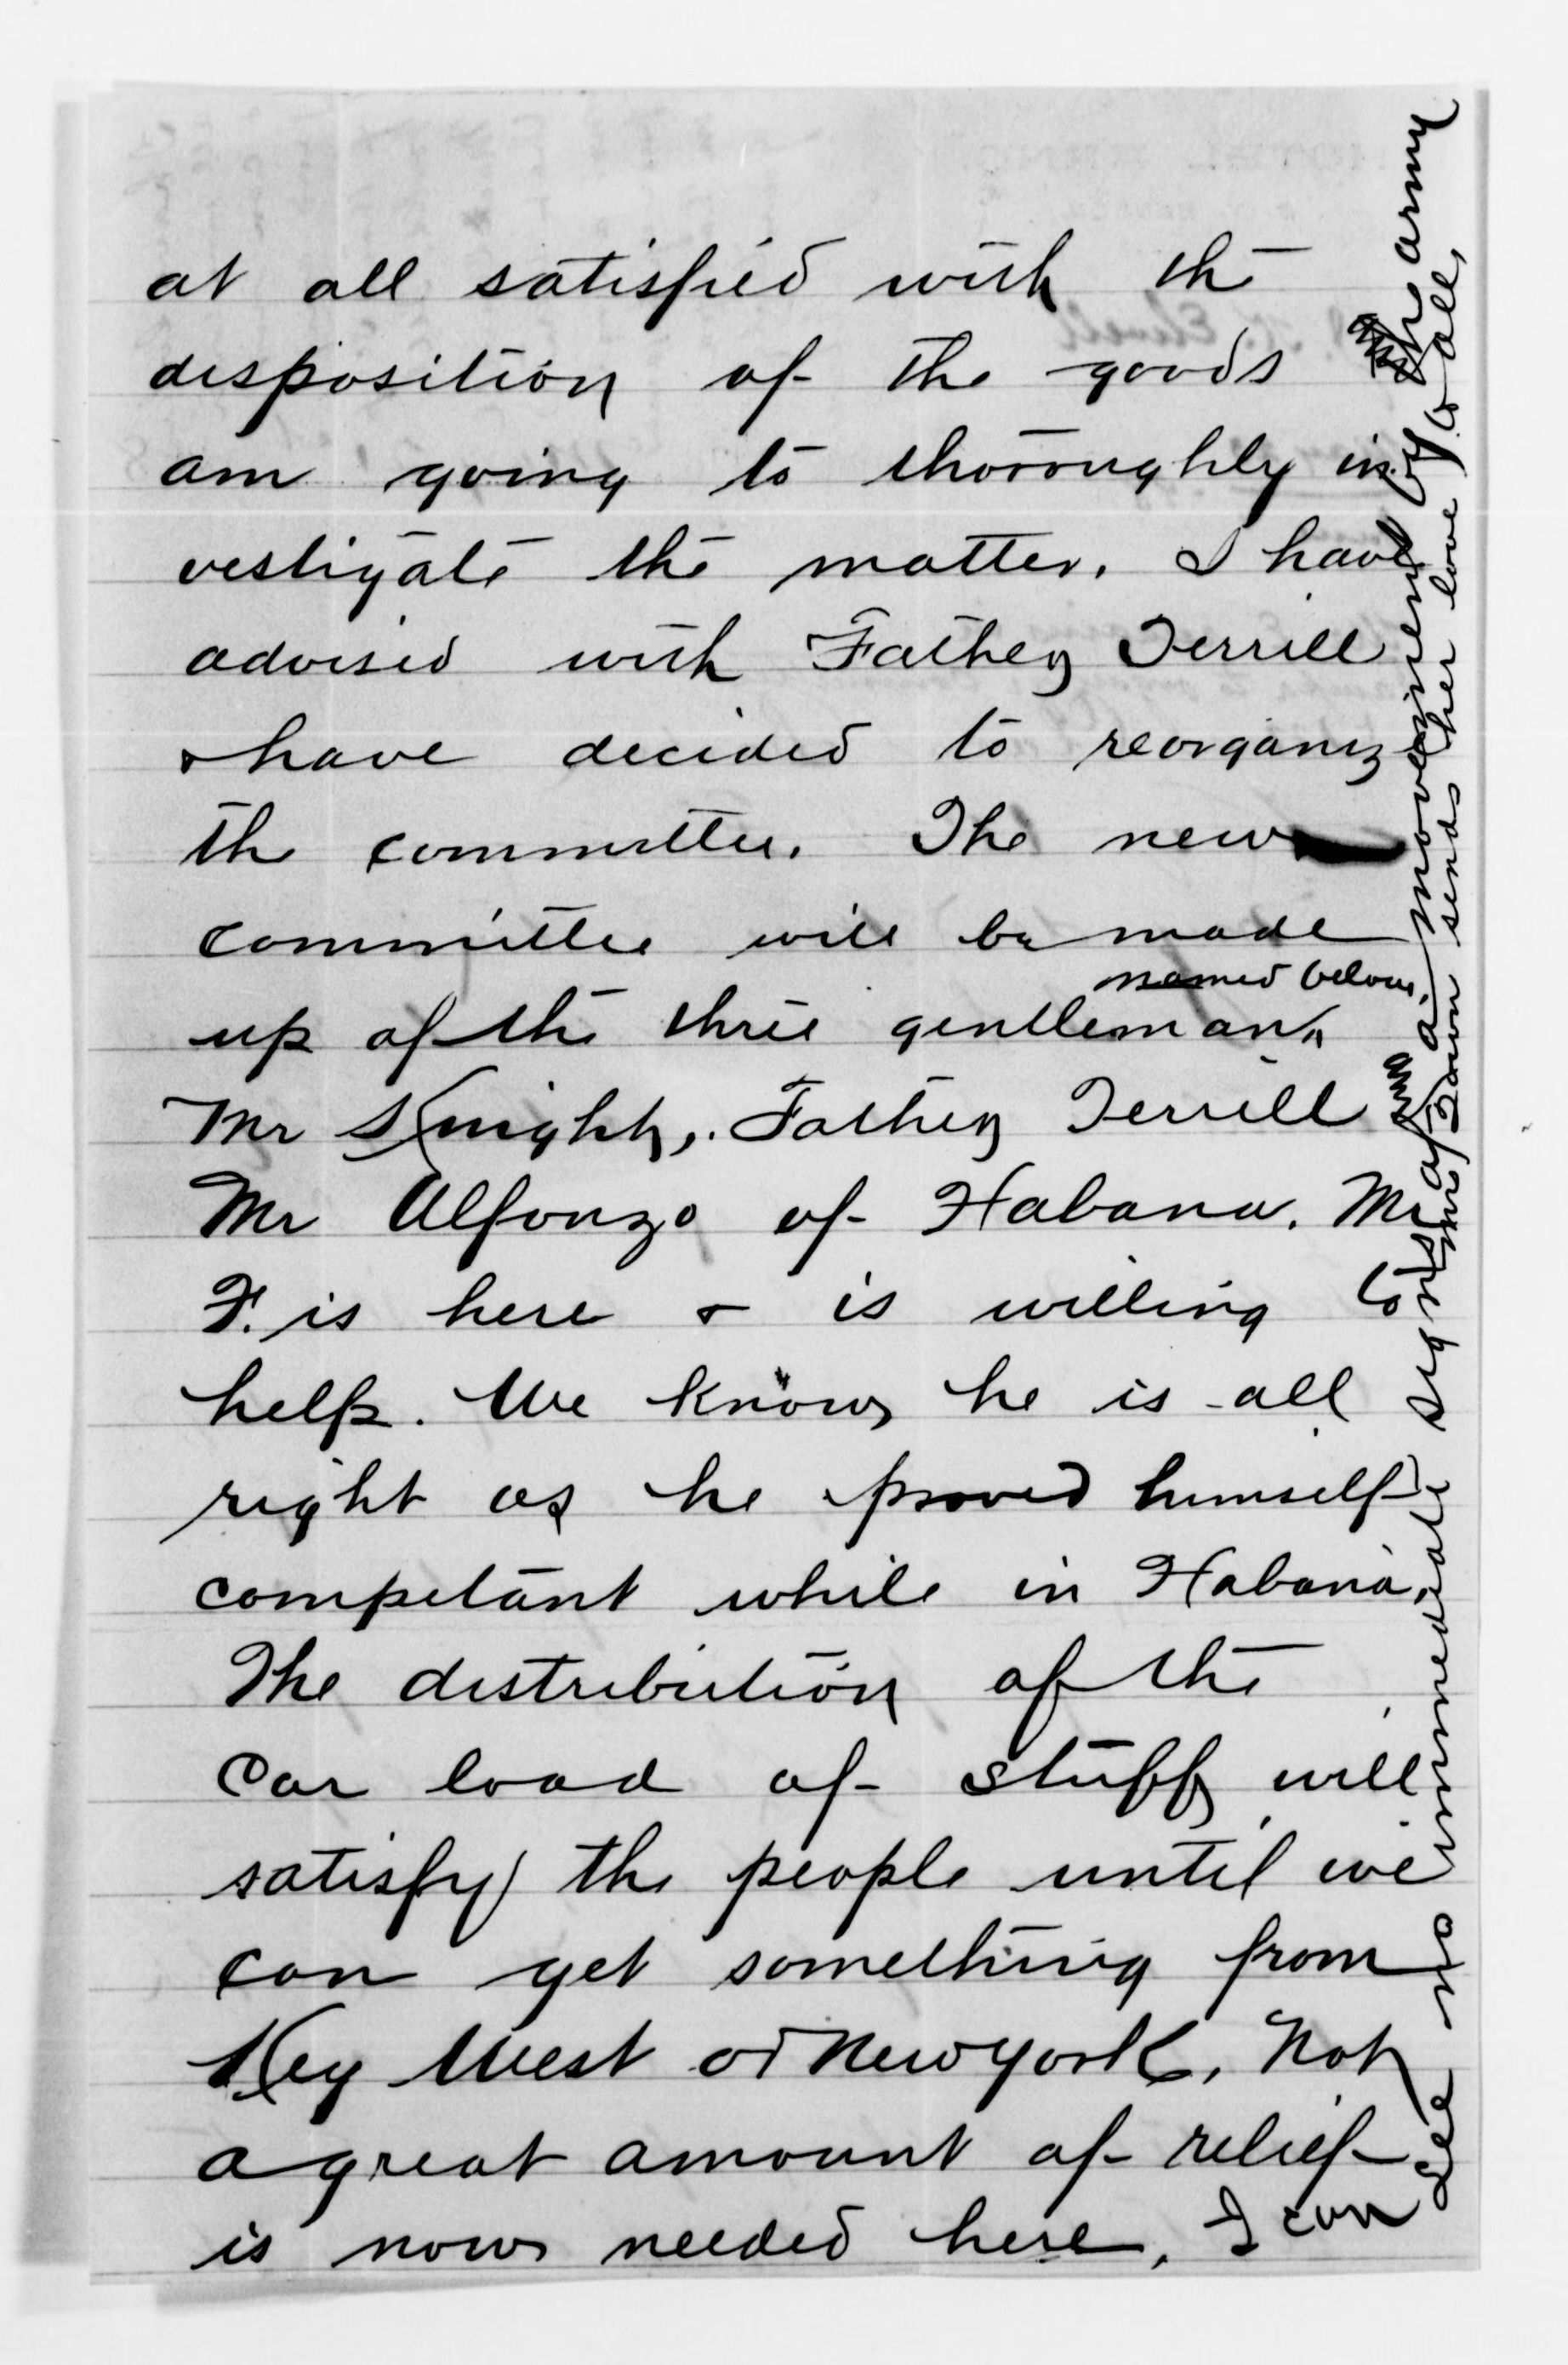 at all satisfied with the
disposition of the goods and
am going to thoroughly in
vestigate the matter. I have
advised with Father Terrill
& have decided to reorganiz
the committee. The new
committee will be made
named below.
up of the three gentleman
Mr Knight, Father Terrill and
Mr Alfonzo of Habana. Mr
F. is here & is willing to
help. We know he is all
right as he proved himself
competant while in Habana.
The distribution of the
car load of stuff will
satisfy the people until we
can get something from
Key West or New York. Not
a great amount of relief
is now needed here. I can
see no immediate signs of a movement by the army
Mrs sends her love to all.